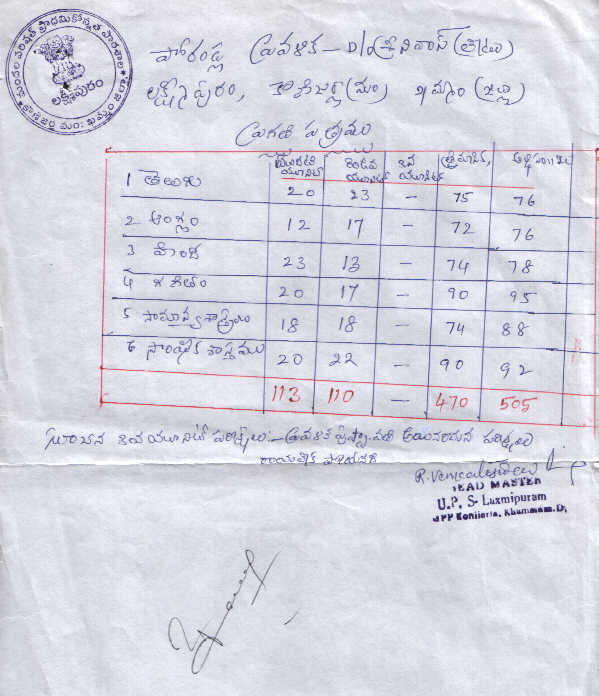 మండల పరిషత్ ప్రాథమికోన్నత పాఠశాల
లక్ష్మీపురం
ప్రవళిక - D/o శ్రీనివాస్ (తాటు)
లక్ష్మీపురం, కొణిజర్ల (మం) ఖమ్మం (జిల్లా)
ప్రగతి పత్రము
మొదటి యూనిట్ రెండవ యూనిట్ 3వ యూనిట్ త్రైమాసిక
1 తెలుగు 20 23 - 75 76
2 ఆంగ్లం 12 17 - 72 76
3 హింది 23 13 - 74 78
4 గణితం 20 17 - 90 95
5 సామాన్య శాస్త్రము 18 18 - 74 88
6 సాంఘిక శాస్త్రము 20 22 - 90 92
113 110 - 470 505
3వ యూనిట్ పరీక్షలు:- ప్రవళిక
R. Venkateswarlu
HEAD MASTER
U.P. S- Laxmipuram
MPP Konijerla, Khammam. D,